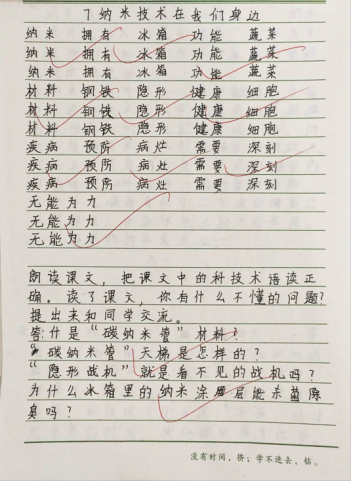 7 纳米技术在我们身边
纳米 拥有 冰箱 功能 蔬菜
纳米 拥有 冰箱 功能 蔬菜
纳米 拥有 冰箱 功能 蔬菜
材料 钢铁 隐形 健康 细胞
材料 钢铁 隐形 健康 细胞
材料 钢铁 隐形 健康 细胞
疾病 预防 病灶 需要 深刻
疾病 预防 病灶 需要 深刻
疾病 预防 病灶 需要 深刻
无能为力
无能为力
无能为力
朗读课文，把课文中的科技术语读正
确。读了课文，你有什么不懂的问题?
提出来和同学交流。
答:什是“碳纳米管”材料?
“碳纳米管”天梯是怎样的?
“隐形战机”就是看不见的战机吗?
为什么冰箱里的纳米涂层能杀菌除
臭吗?
没有时间，挤；学不进去，钻。